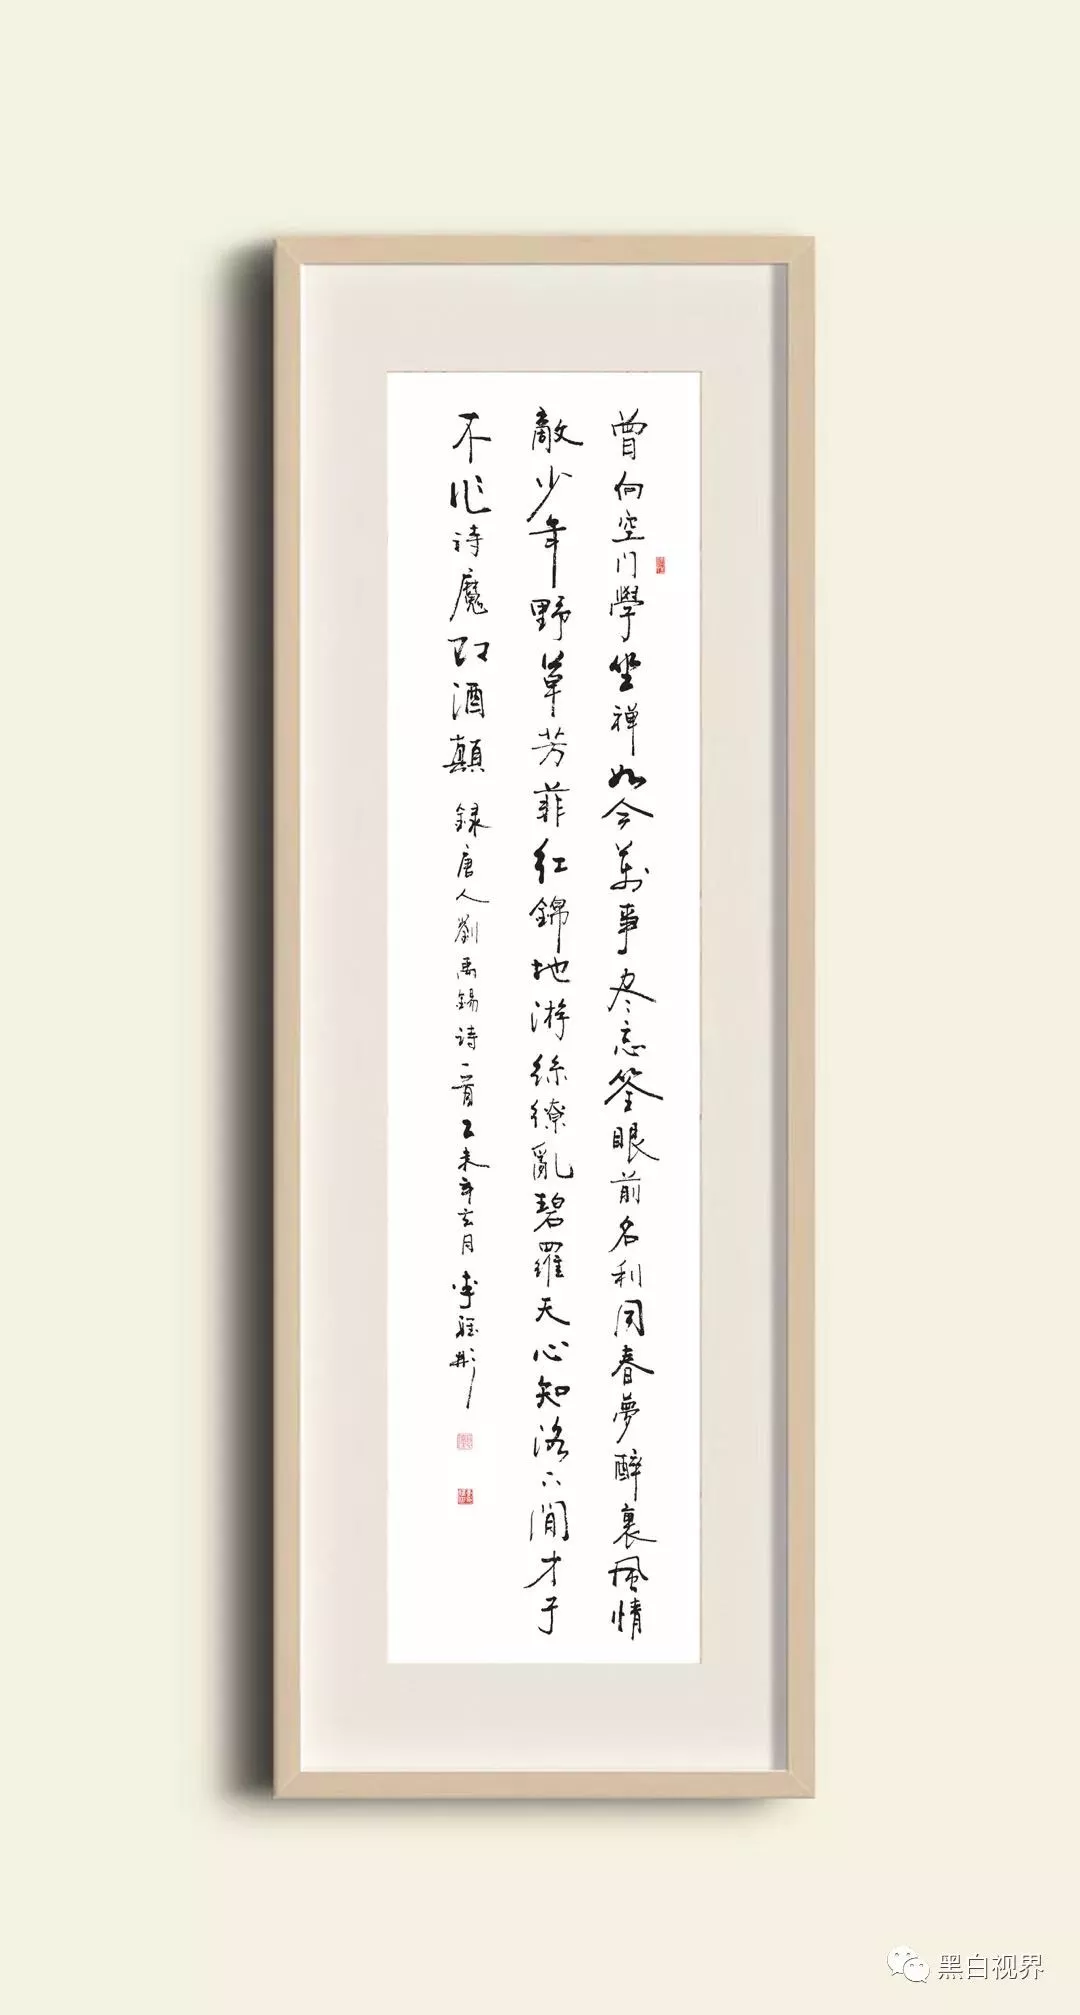 曾向空门學坐禅如今萬事尽忘筌眼前名利同春夢醉裏风情
敵少年野草芳菲红錦地游絲缭亂碧羅天心知洛下閒才子
不作诗魔即酒顛
録唐人劉禹錫诗一首乙未年玄月李
黑白视界